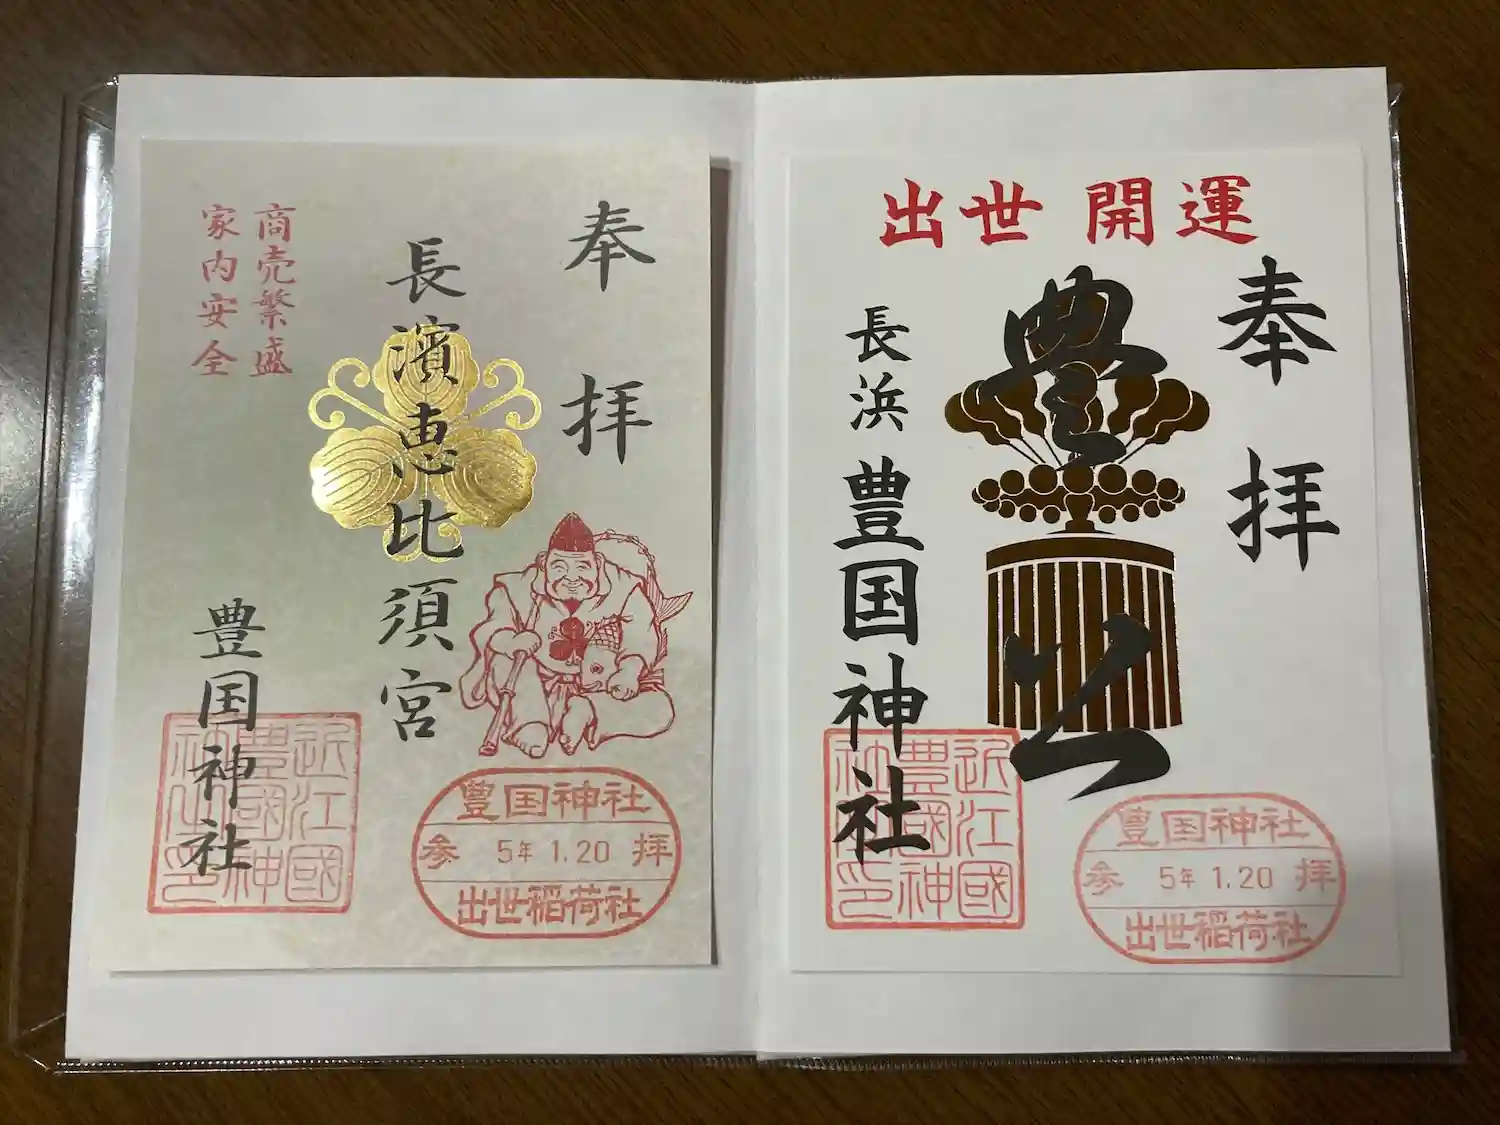 奉拝
長濱恵比須宮
商売繁盛
家内安全
豊国神社
近江國
豊國神
社之印
豊国神社
参 5年 1.20 拝
出世稲荷社
出世 開運
奉拝
豊公
長浜 豊国神社
近江國
豊國神
社之印
豊国神社
参 5年 1.20 拝
出世稲荷社